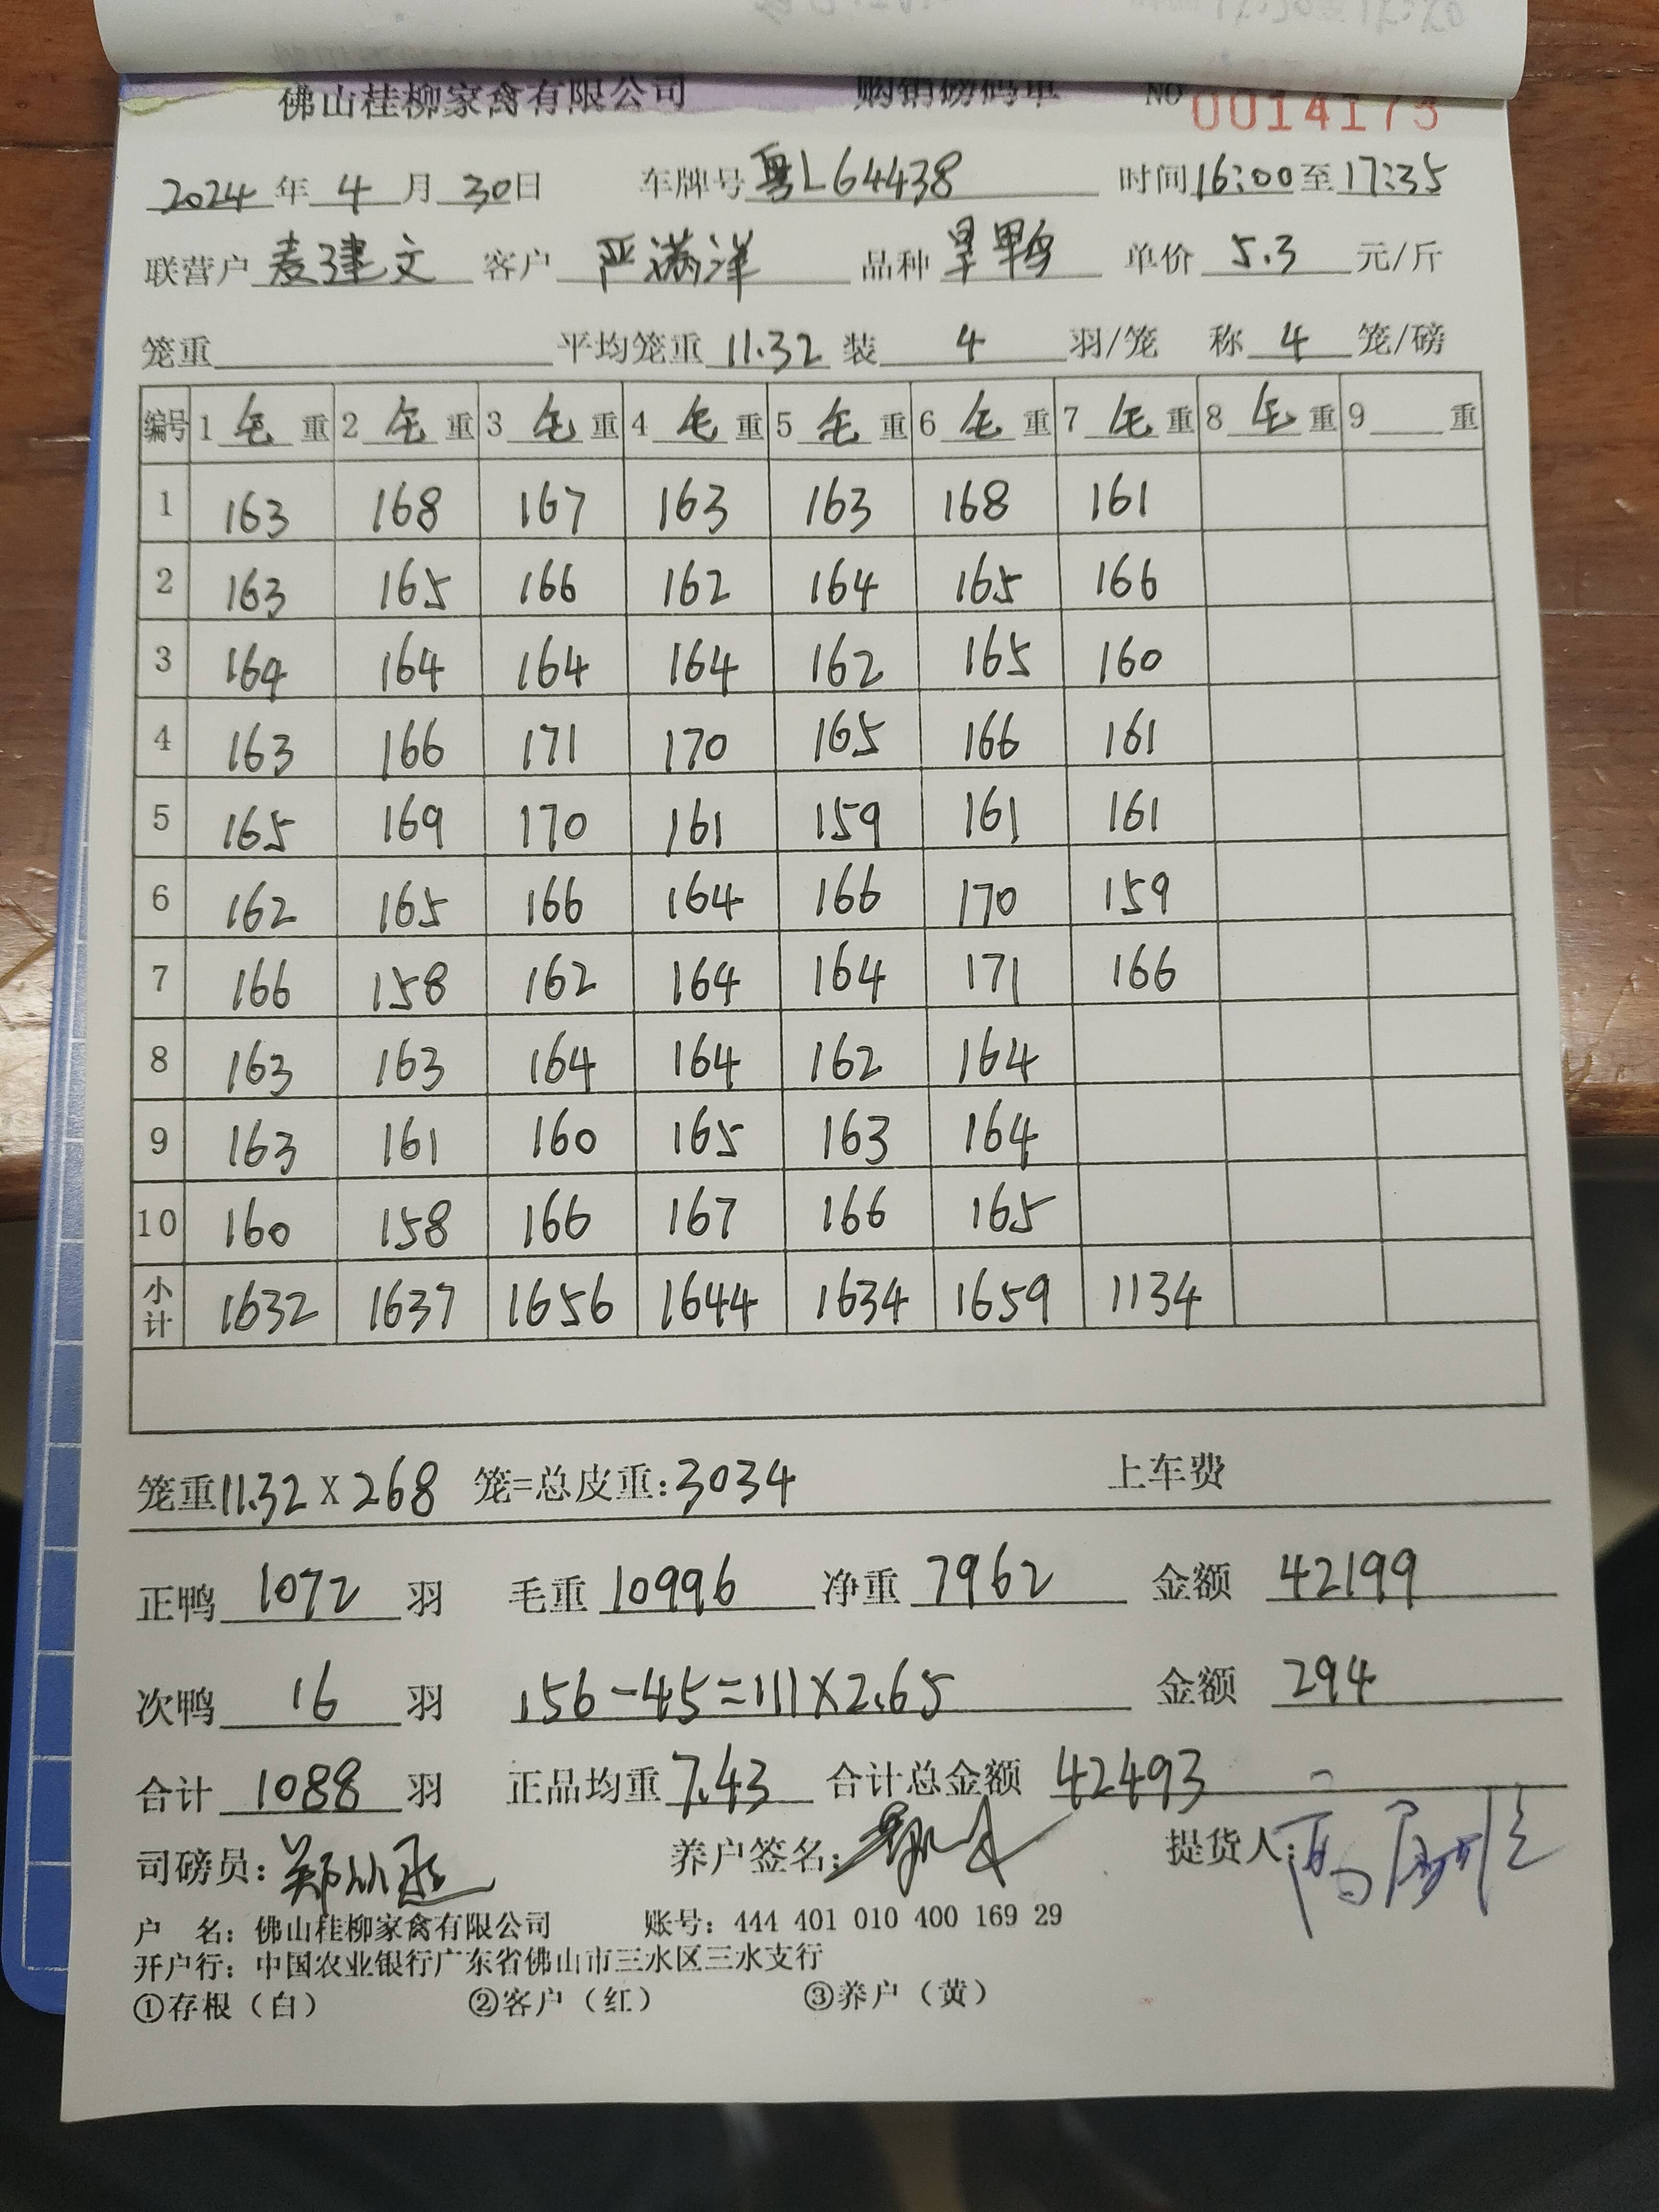 佛山桂柳家禽有限公司 购销磅码单 NO 0014173
2024年4月30日 车牌号粤L64438 时间16:00至17:35
联营户麦建文 客户严满洋 品种旱鸭 单价5.3元/斤
笼重 平均笼重11.32装4羽/笼 称4笼/磅
编号 1毛重 2毛重 3毛重 4毛重 5毛重 6毛重 7毛重 8毛重 9重
1 163 168 167 163 163 168 161
2 163 165 166 162 164 165 166
3 164 164 164 164 162 165 160
4 163 166 171 170 165 166 161
5 165 169 170 161 159 161 161
6 162 165 166 164 166 170 159
7 166 158 162 164 164 171 166
8 163 163 164 164 162 164
9 163 161 160 165 163 164
10 160 158 166 167 166 165
小计 1632 1637 1656 1644 1634 1659 1134
笼重11.32×268笼=总皮重:3034 上车费
正鸭1072羽 毛重10996 净重7962 金额42199
次鸭16羽 156-45=111×2.65 金额294
合计1088羽 正品均重7.43 合计总金额42493
司磅员: 养户签名: 提货人:
户 名:佛山桂柳家禽有限公司 账号:444 401 010 400 169 29
开户行:中国农业银行广东省佛山市三水区三水支行
①存根（白） ②客户（红） ③养户（黄）